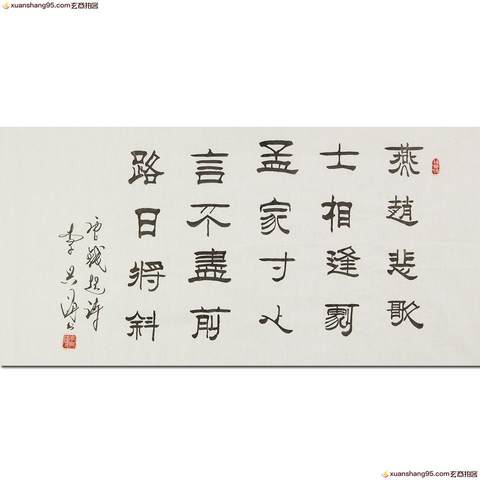 xuanshang95.com玄商拍客
燕趙悲歌
士相逢劇
孟家寸心
言不盡前
路日將斜
唐錢起詩
李
xuanshang95.com玄商拍客